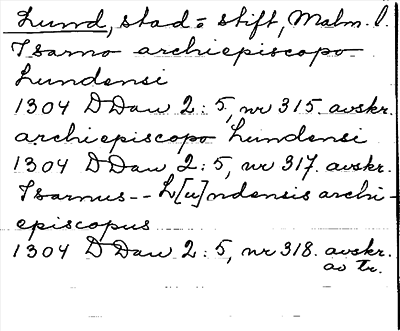 Lund, stad = stift, Malm. l.
Isarno archiepiscopo
Lundensi
1304 DDan 2:5, nr 315. avskr.
archiepiscopo Lundensi
1304 DDan 2:5, nr 317. avskr.
Isarnus -- L[u]ndensis archi-
episcopus
1304 DDan 2:5, nr 318. avskr.
av tr.